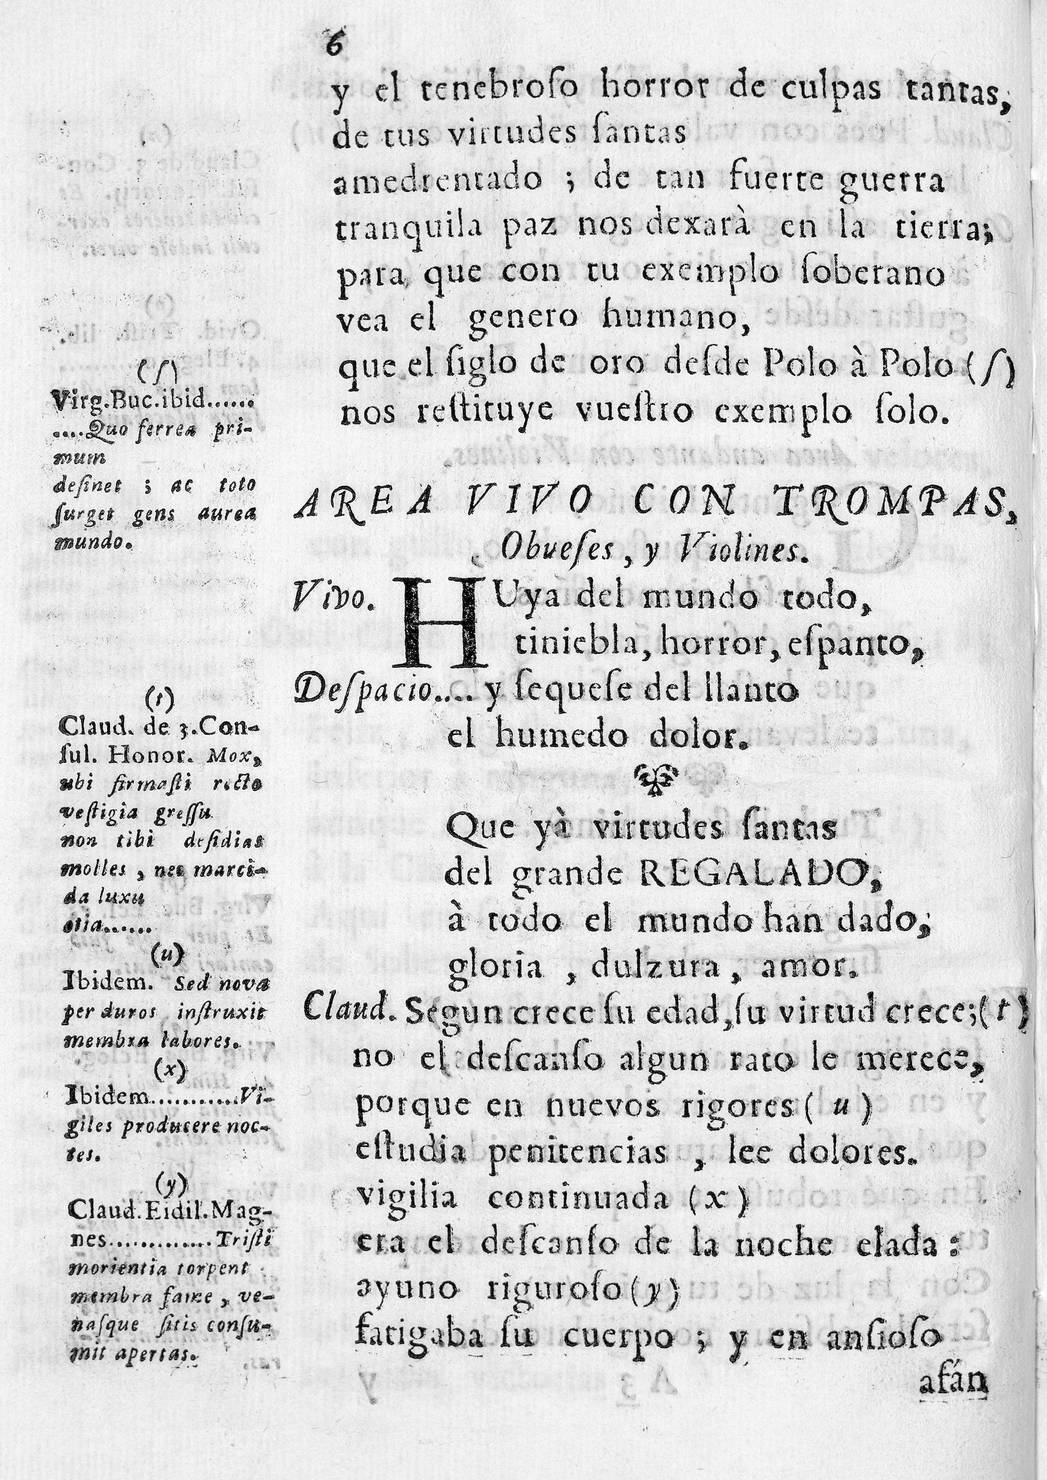 6
y el tenebroſo horror de culpas tantas,
de tus virtudes ſantas
amedrentado ; de tan fuerte guerra
tranquila paz nos dexarà en la tierra;
para que con tu exemplo ſoberano
vea el genero humano,
que el ſiglo de oro deſde Polo à Polo (ſ)
nos reſtituye vueſtro exemplo ſolo.
(ſ)
Virg.Buc.ibid......
....Quo ferrea pri-
mum
deſinet ; ac toto
ſurget gens aurea
mundo.
AREA VIVO CON TROMPAS,
Obueſes, y Violines.
Vivo. HUya del mundo todo,
tiniebla, horror, eſpanto,
Deſpacio.... y ſequeſe del llanto
el humedo dolor.
Que yà virtudes ſantas
del grande REGALADO,
à todo el mundo han dado,
gloria , dulzura , amor.
Claud. Segun crece ſu edad, ſu virtud crece;(t)
no el deſcanſo algun rato le merece,
porque en nuevos rigores ( u )
eſtudia penitencias , lee dolores.
vigilia continuada (x)
era el deſcanſo de la noche elada :
ayuno riguroſo (y)
fatigaba ſu cuerpo ; y en anſioſo
afán
(t)
Claud. de 3.Con-
ſul. Honor. Mox,
ubi firmaſti recto
veſtigia greſſu
non tibi deſidias
molles , nec marci-
da luxu
otia......
(u)
Ibidem. Sed nova
per duros inſtruxit
membra labores.
(x)
Ibidem...........Vi-
giles producere noc-
tes.
(y)
Claud.Eidil.Mag-
nes.............Triſti
morientia torpent
membra fame , ve-
naſque ſitis conſu-
mit apertas.